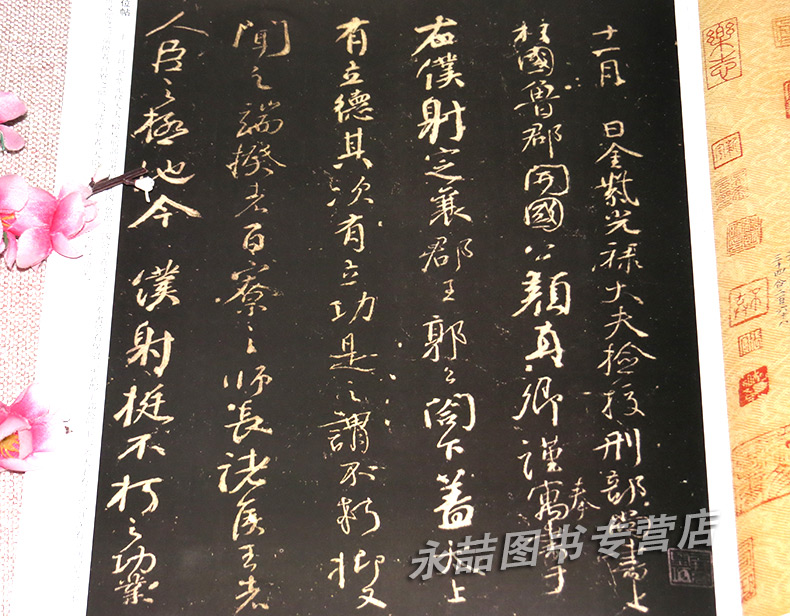 十一月 日金紫光禄大夫检挍刑部尚书上
柱國魯郡開國公顏真卿謹奉寓書于
右僕射定襄郡王郭公閤下蓋太上
有立德其次有立功是之謂不朽抑又
聞之端揆者百寮之師長諸侯王者
人臣之極地今 僕射挺不朽之功業
位帖
永喆图书专营店